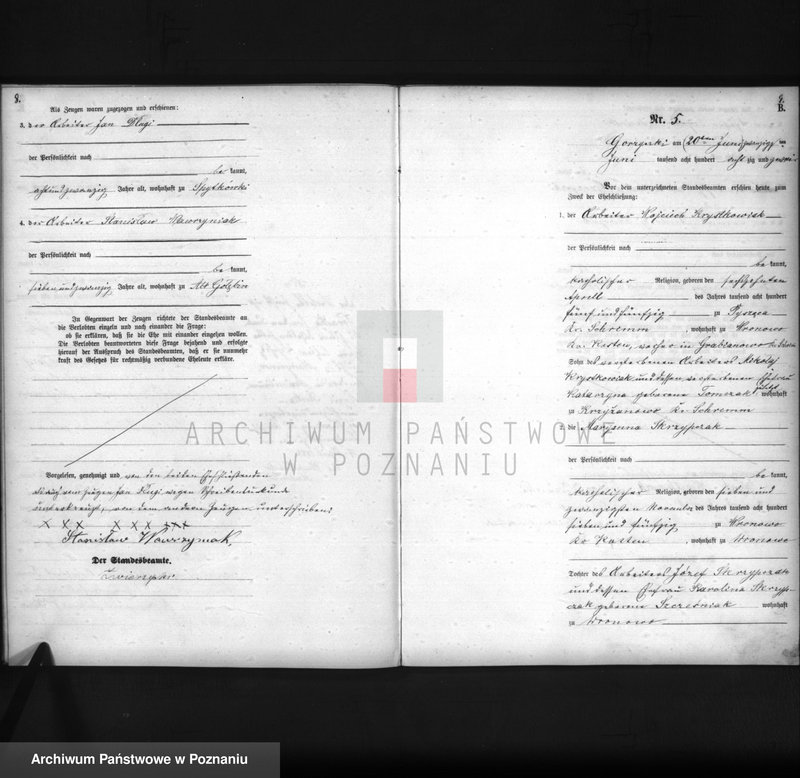 8.
Als Zeugen waren zugezogen und erschienen:
3. der Arbeiter Jan Dlugi
der Persönlichkeit nach
be kannt,
achtundzwanzig Jahre alt, wohnhaft zu Spytkowki
4. der Arbeiter Stanislaw Wawrzyniak
der Persönlichkeit nach
be kannt,
siebenundzwanzig Jahre alt, wohnhaft zu Alt
In Gegenwart der Zeugen richtete der Standesbeamte an
die Verlobten einzeln und nach einander die Frage:
ob sie erklären, daß sie die Ehe mit einander eingehen wollen.
Die Verlobten beantworteten diese Frage bejahend und erfolgte
hierauf der Ausspruch des Standesbeamten, daß er sie nunmehr
kraft des Gesetzes für rechtmäßig verbundene Eheleute erkläre.
Vorgelesen, genehmigt und von den beiden Eheschließenden
Zeugen Jan Dlugi wegen Schreibensunkunde
unterkreuzt, von dem andern Zeugen unterschrieben
x xx xxx xxx
Stanisław Wawrzyniak.
Der Standesbeamte.
Zwierzycki
9.
B.
Nr. 5.
Gorzycki am 20ten
Juni tausend acht hundert acht zig und
Vor dem unterzeichneten Standesbeamten erschien heute zum
Zweck der Eheschließung:
1. der Arbeiter Wojciech Krystkowiak
der Persönlichkeit nach
be kannt,
katholischer Religion, geboren den sechzehnten
April des Jahres tausend acht hundert
fünf und fünfzig zu Pysząca
Kr. Schremm, wohnhaft zu Wronowo
Kr. Kosten, vorher in Grabianowo
Sohn des verstorbenen Arbeiters Mikolaj
Krystkowiak und dessen verstorbenen Ehefrau
Katarzyna geborene Tomczak wohnhaft
zu Krzyżanowo Kr. Schremm
2. die Maryanna Skrzypczak
der Persönlichkeit nach
be kannt,
katholischer Religion, geboren den sieben und
zwanzigsten November des Jahres tausend acht hundert
sieben und fünfzig zu Wronowo
Kr Kosten, wohnhaft zu Wronowo
Tochter des Arbeiters Józef Skrzypczak
und dessen Ehefrau Karolina Skrzyp-
czak geborene Szcześniak wohnhaft
zu Wronowo
ARCHIWUM PAŃSTWOWE
W POZNANIU
Archiwum Państwowe w Poznaniu